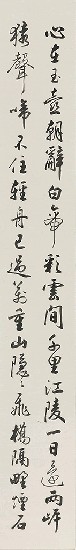 心在玉壺朝辭白帝彩雲間千里江陵一日還兩岸
猿聲啼不住輕舟已過萬重山隱〻飛橋隔野煙石